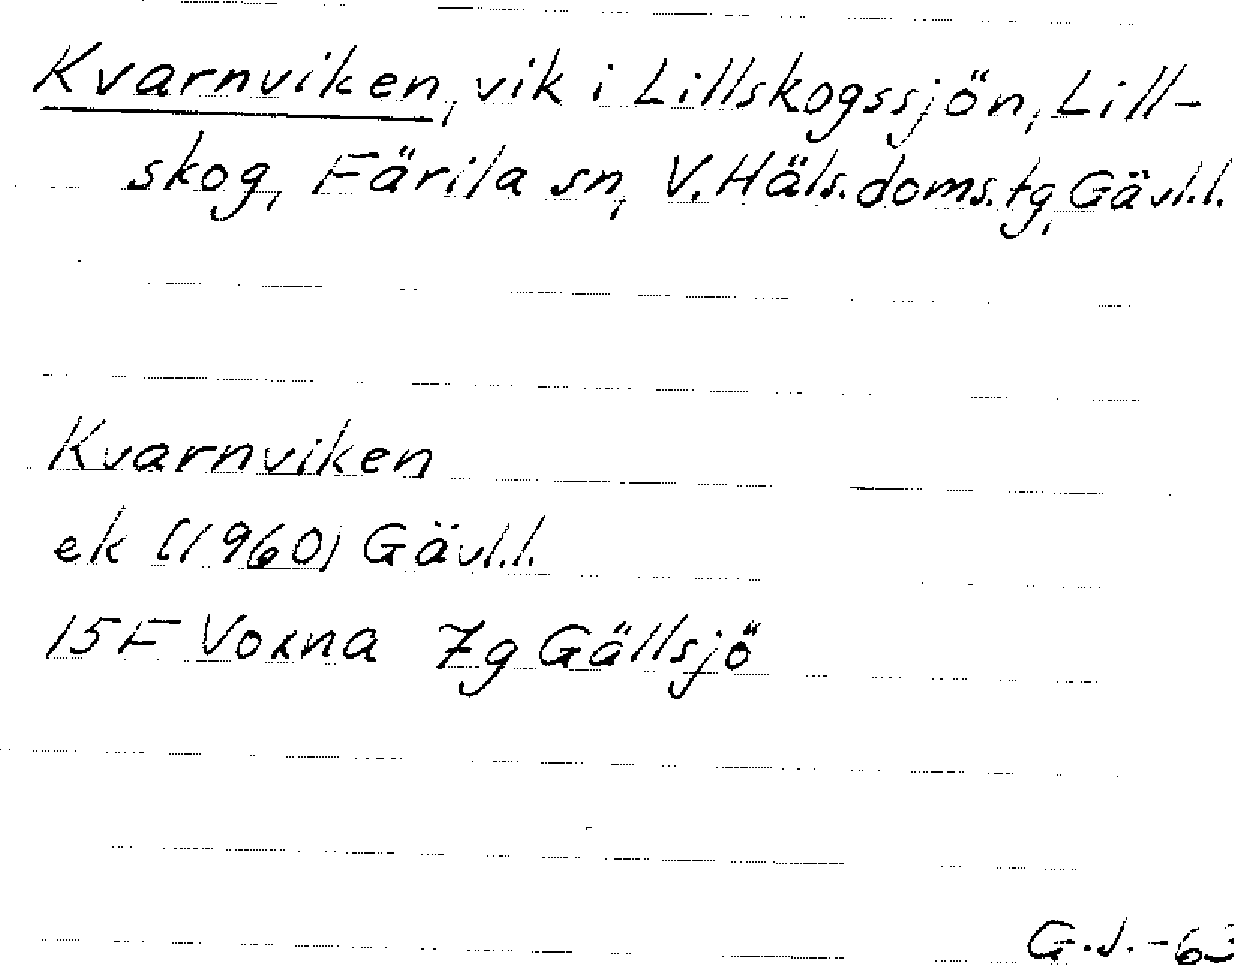 Kvarnviken, vik i Lillskogssjön, Lill-
skog, Färila sn, V. Häls. doms. tg, Gävl.l.
Kvarnviken
ek (1960) Gävl.l.
15F Voxna 7g Gällsjö
G.J. -63